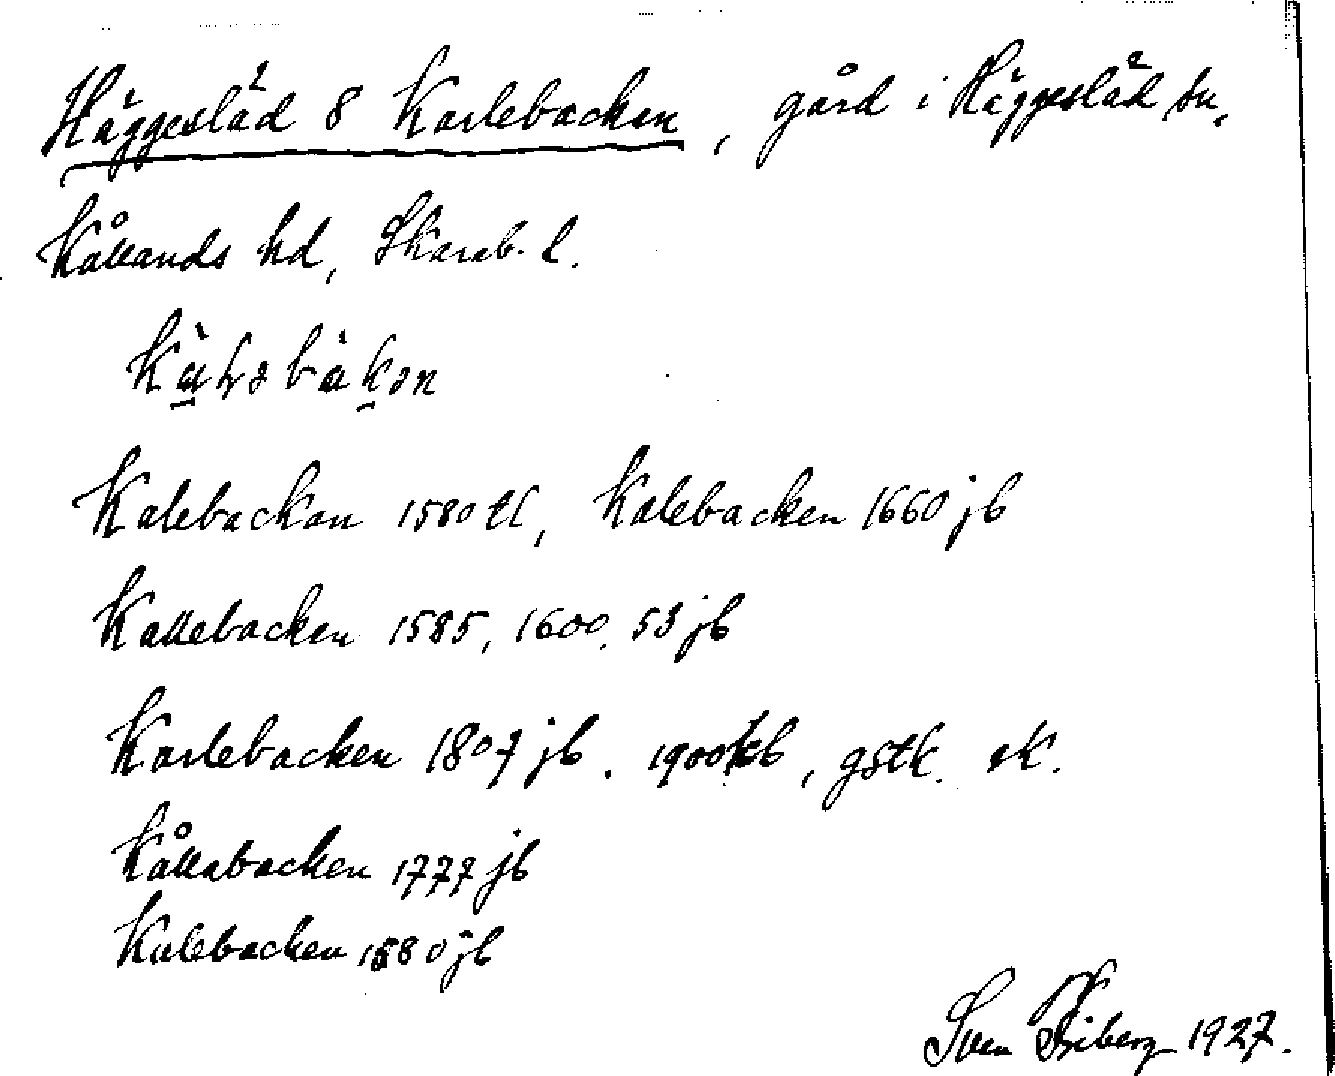 Häggesläd 8 Karlebacken, gård i Häggesläd sn,
Kållands hd, Skarab. l.
Kalebackan 1580 tl, Kalebacken 1660 jb
Kallebacken 1585, 1600, 53 jb
Karlebacken 1807 jb. 1900 kb, gstk. ek.
Kållabacken 1777 jb
Kalebacken 1580 jb
Sven Friberg 1927.